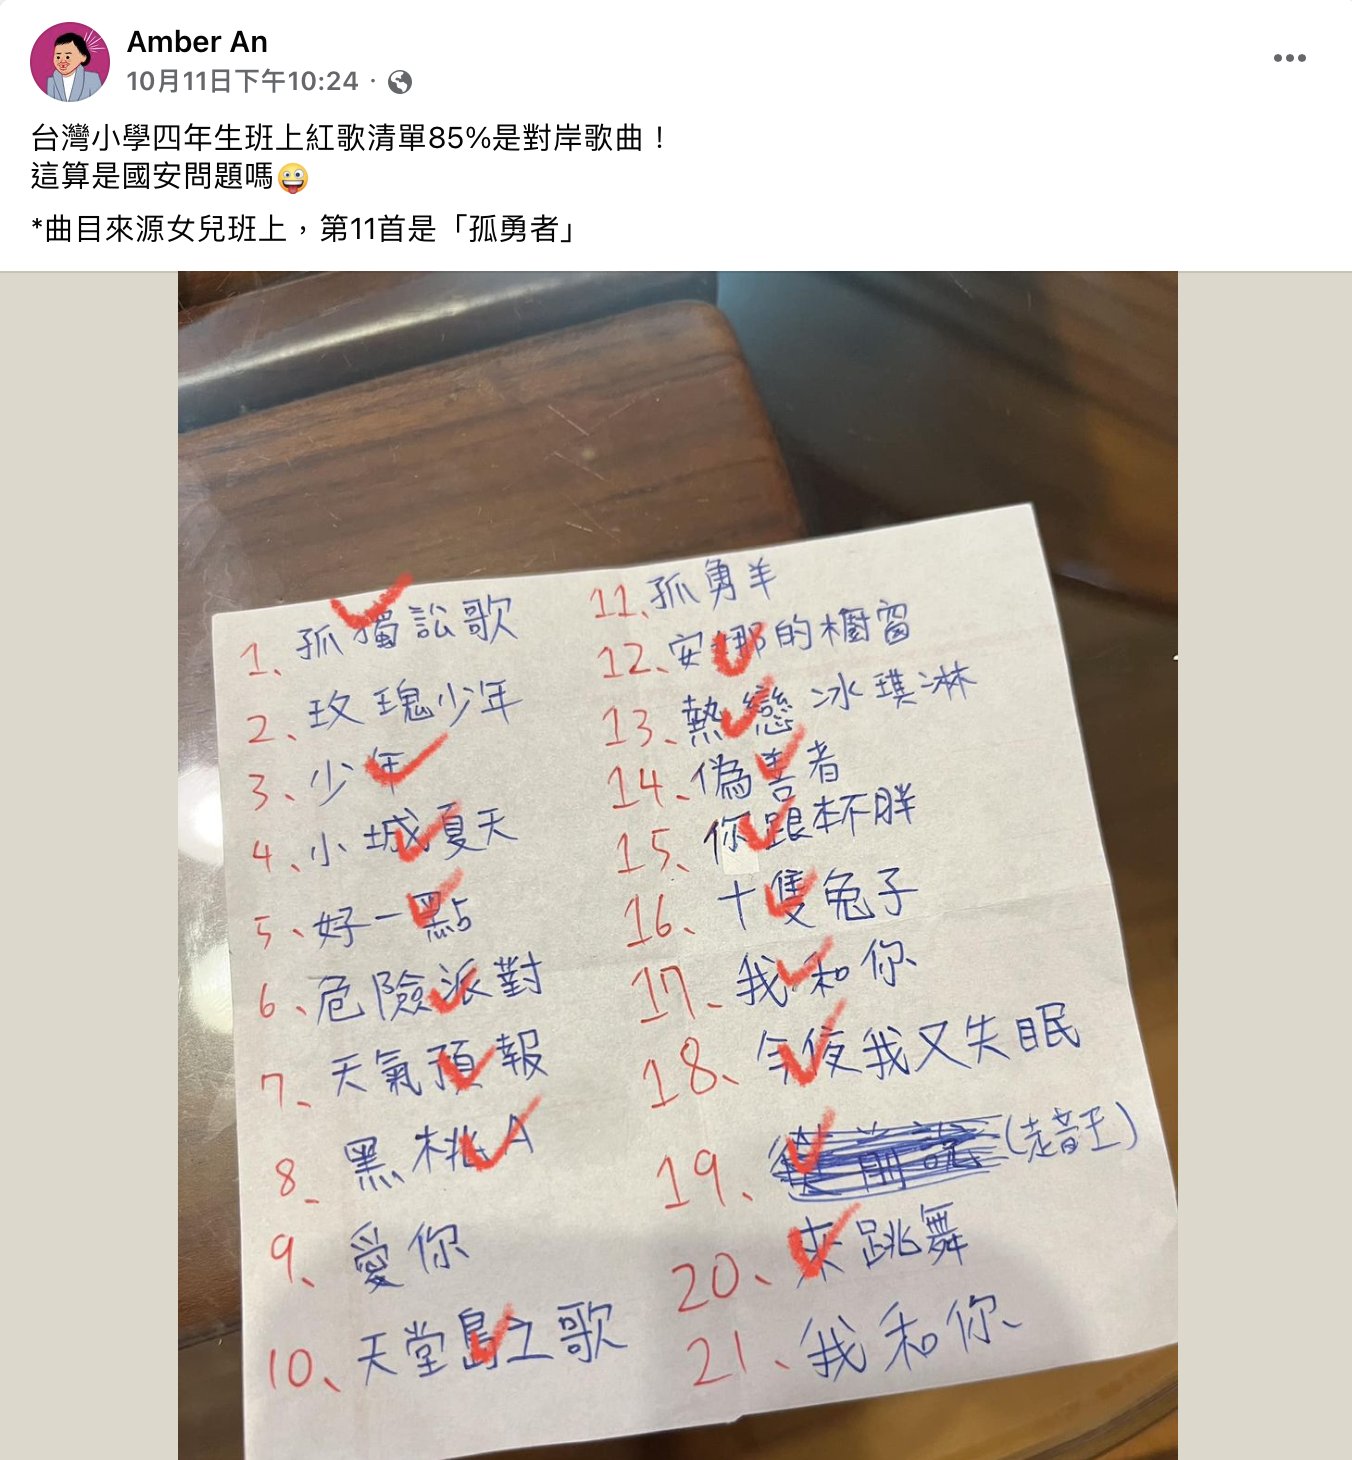 Amber An
10月11日下午10:24 ·
台灣小學四年生班上紅歌清單85%是對岸歌曲！
這算是國安問題嗎🤪
*曲目來源女兒班上，第11首是「孤勇者」
1、孤獨訟歌
2、玫瑰少年
3、少年
4、小城夏天
5、好一點
6、危險派對
7、天氣預報
8、黑桃A
9、愛你
10、天堂島之歌
11、孤勇羊
12、安娜的櫥窗
13、熱戀冰璞淋
14、偽善者
15、你跟杯胖
16、十隻兔子
17、我和你
18、今夜我又失眠
19、(走音王)
20、來跳舞
21、我和你